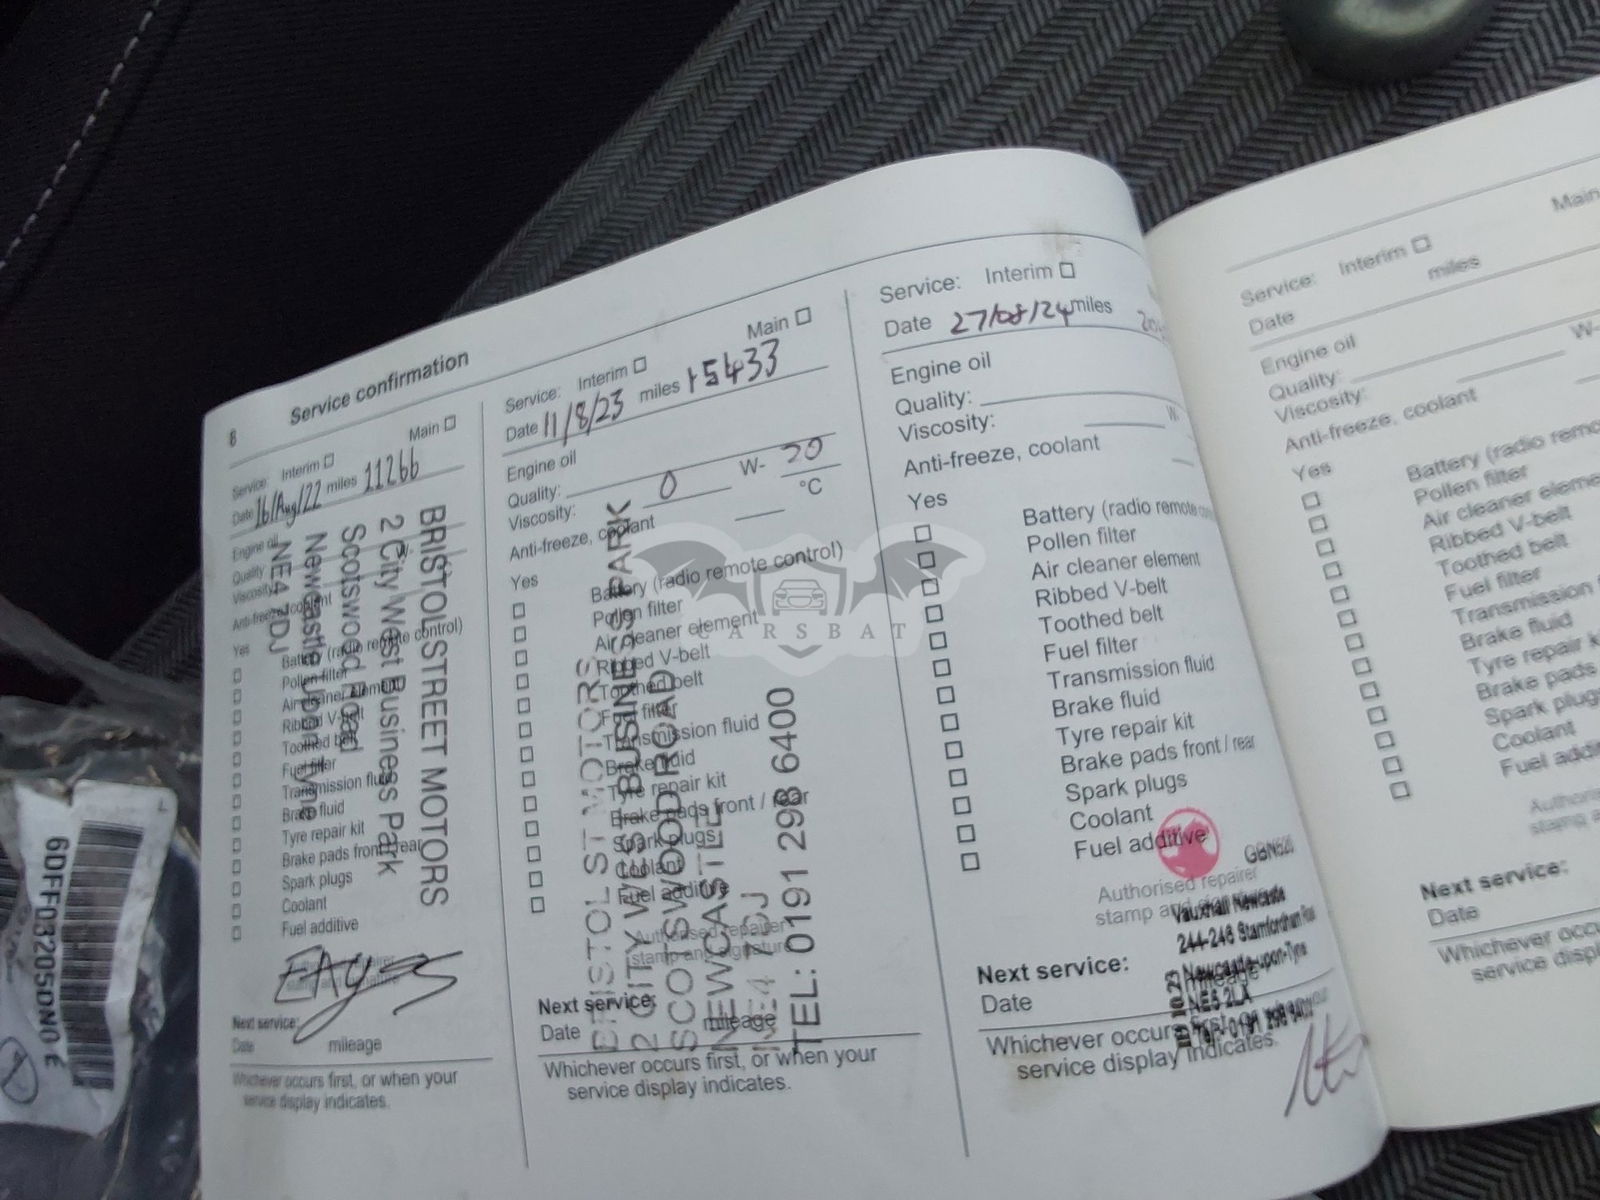 8 Service confirmation
Service: Interim Main
Date 16/Aug/22 miles 11266
Engine oil
Quality
Viscosity
Anti-freeze, coolant
Yes
Battery (radio remote control)
Pollen filter
Air cleaner element
Ribbed V-belt
Toothed belt
Fuel filter
Transmission fluid
Brake fluid
Tyre repair kit
Brake pads front / rear
Spark plugs
Coolant
Fuel additive
BRISTOL STREET MOTORS
2 City West Business Park
Scotswood Road
Newcastle Upon Tyne
NE4 7DJ
Next service:
Date mileage
Whichever occurs first, or when your
service display indicates.
Service: Interim Main
Date 11/8/23 miles 15433
Engine oil
Quality:
Viscosity: 0 W- 20
Anti-freeze, coolant °C
Yes
Battery (radio remote control)
Pollen filter
Air cleaner element
Ribbed V-belt
Toothed belt
Fuel filter
Transmission fluid
Brake fluid
Tyre repair kit
Brake pads front / rear
Spark plugs
Coolant
Fuel additive
Authorised repairer
stamp and signature
BRISTOL ST MOTORS
2 CITY WEST BUSINESS PARK
SCOTSWOOD ROAD
NEWCASTLE
NE4 7DJ
TEL: 0191 298 6400
Next service:
Date mileage
Whichever occurs first, or when your
service display indicates.
Service: Interim
Date 27/08/24 miles
Engine oil
Quality:
Viscosity: W-
Anti-freeze, coolant
Yes
Battery (radio remote
Pollen filter
Air cleaner element
Ribbed V-belt
Toothed belt
Fuel filter
Transmission fluid
Brake fluid
Tyre repair kit
Brake pads front / rear
Spark plugs
Coolant
Fuel additive
Authorised repairer
stamp and
Vauxhall Newcastle
244-246 Stamfordham
Newcastle-upon-Tyne
NE5 2LA
Next service:
Date mileage
Whichever occurs first, or when your
service display indicates.
Main
Service: Interim
Date miles
Engine oil
Quality: W-
Viscosity:
Anti-freeze, coolant
Yes
Battery (radio
Pollen filter
Air cleaner
Ribbed V-belt
Toothed belt
Fuel filter
Transmission
Brake fluid
Tyre repair
Brake pads
Spark plugs
Coolant
Fuel
Next service:
Date
Whichever
service
CARSBAT
6DFF03205DN0E